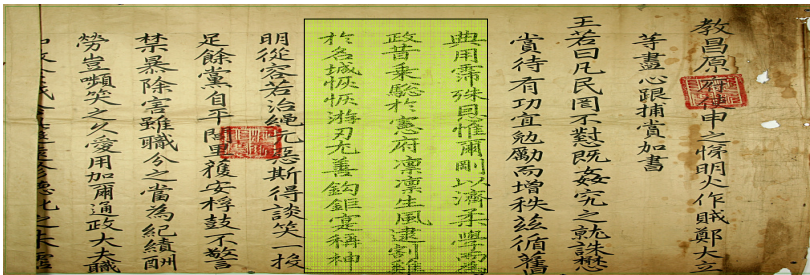 教昌原府使申之悌明火作賊鄭大立
等盡心跟捕賞加書
王若曰凡民罔不憝旣姦宄之就誅懋
賞待有功宜勉勵而增秩玆循舊
典用霈殊恩惟爾剛以濟柔學而
政昔乘驄於憲府凜凜生風逮割雞
於名城恢恢游刃尤善鉤鉅寔稱神
明從容若治繩元惡斯得談笑一投
足餘黨自平閭里獲安桴鼓不警
禁暴除害雖職分之當為紀績酬
勞豈嚬笑之久愛用加爾通政大夫職